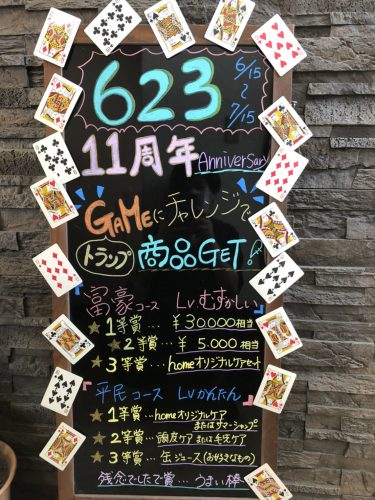 623
6/15
~
7/15
11周年 Anniversary
GAMEにチャレンジで
トランプ 商品GET!
富豪コース Lvむずかしい
★1等賞…¥30.000相当
★2等賞…¥5.000相当
★3等賞…homeオリジナルケアセット
平民コース Lvかんたん
★1等賞…homeオリジナルケア
またはサマーシャンプ
★2等賞…頭皮ケアまたは毛先ケア
★3等賞…缶ジュース(お好きなもの)
残念でしたで賞…うまい棒